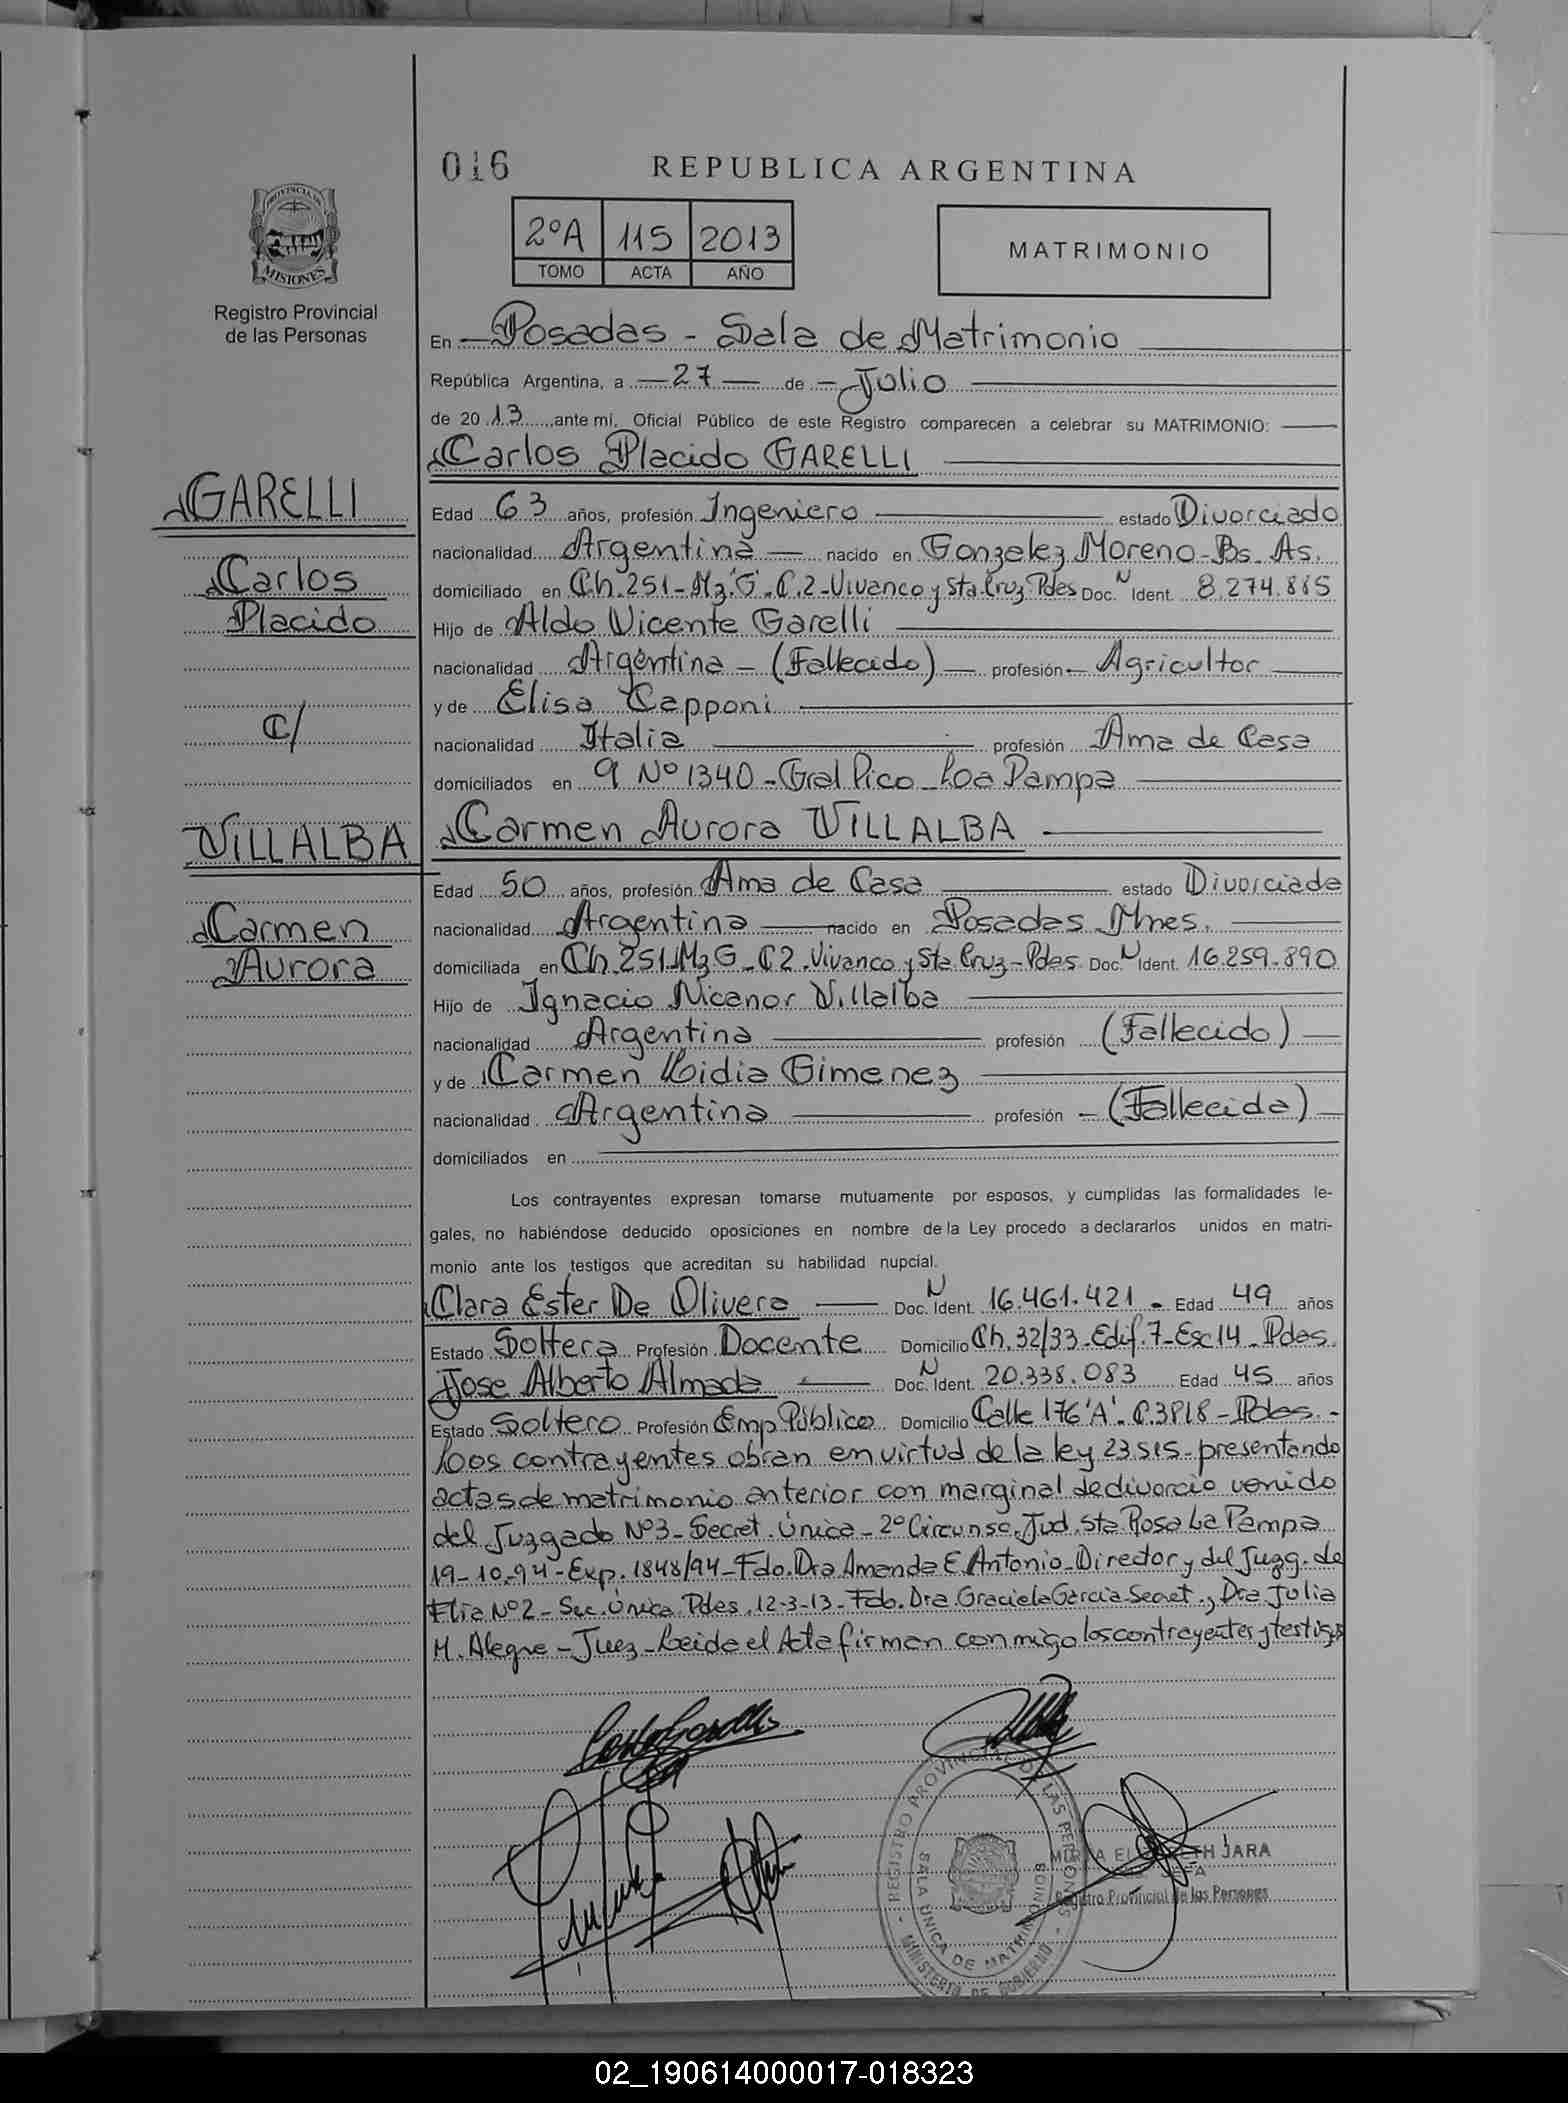 016 REPUBLICA ARGENTINA
PROVINCIA DE
MISIONES
Registro Provincial
de las Personas
2ºA 115 2013
TOMO ACTA AÑO
MATRIMONIO
En Posadas - Sala de Matrimonio
República Argentina, a 27 de Julio
de 2013 ante mi, Oficial Público de este Registro comparecen a celebrar su MATRIMONIO:
Carlos Placido GARELLI
GARELLI
Carlos
Placido
C/
VILLALBA
Carmen
Aurora
Edad 63 años, profesión Ingeniero estado Divorciado
nacionalidad Argentina nacido en Gonzalez Moreno - Bs. As.
domiciliado en Ch. 251 - Mz. "G" - C. 2 - Vivanco y Sta. Cruz Pdes Doc. N Ident. 8.274.865
Hijo de Aldo Vicente Garelli
nacionalidad Argentina - (Fallecido) - profesión Agricultor
y de Elisa Capponi
nacionalidad Italia profesión Ama de Casa
domiciliados en 9 Nº 1340 - Gral Pico - La Pampa
Carmen Aurora VILLALBA
Edad 50 años, profesión Ama de Casa estado Divorciada
nacionalidad Argentina nacido en Posadas Mnes.
domiciliada en Ch. 251 Mz G - C 2 - Vivanco y Sta Cruz - Pdes Doc. N Ident. 16.259.890
Hijo de Ignacio Nicanor Villalba
nacionalidad Argentina profesión (Fallecido)
y de Carmen Lidia Gimenez
nacionalidad Argentina profesión - (Fallecida)
domiciliados en
Los contrayentes expresan tomarse mutuamente por esposos, y cumplidas las formalidades le-
gales, no habiéndose deducido oposiciones en nombre de la Ley procedo a declararlos unidos en matri-
monio ante los testigos que acreditan su habilidad nupcial.
Clara Ester De Olivera Doc. N Ident. 16.461.421 - Edad 49 años
Estado Soltera Profesión Docente Domicilio Ch. 32/33 - Edif. 7 - Esc 14 - Pdes.
Jose Alberto Almada Doc. N Ident. 20.338.083 Edad 45 años
Estado Soltero Profesión Emp Público Domicilio Calle 176 'A' - C. 3818 - Pdes. -
Los contrayentes obran en virtud de la ley 23515 - presentando
actas de matrimonio anterior con marginal de divorcio venido
del Juzgado Nº 3 - Secret. Única - 2º Circunsc. Jud. Sta Rosa La Pampa
19-10-94 - Exp. 1848/94 - Fdo. Dra Amanda E. Antonio - Director y del Juzg. de
Flia Nº 2 - Sec. Única Pdes. 12-3-13 - Fdo. Dra. Graciela Garcia - Secret., Dra Julia
M. Alegre - Juez - Leida el Acta firman conmigo los contrayentes y testigos
REGISTRO PROVINCIAL DE LAS PERSONAS
SALA UNICA DE MATRIMONIOS
- MINISTERIO DE GOBIERNO -
JARA
Registro Provincial de las Personas
02_190614000017-018323